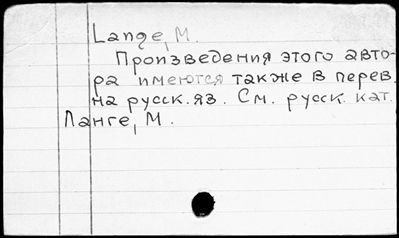 Lange, M.
Произведения этого авто-
ра имеются также в перев.
на русск. яз. См. русск. кат.
Ланге, М.